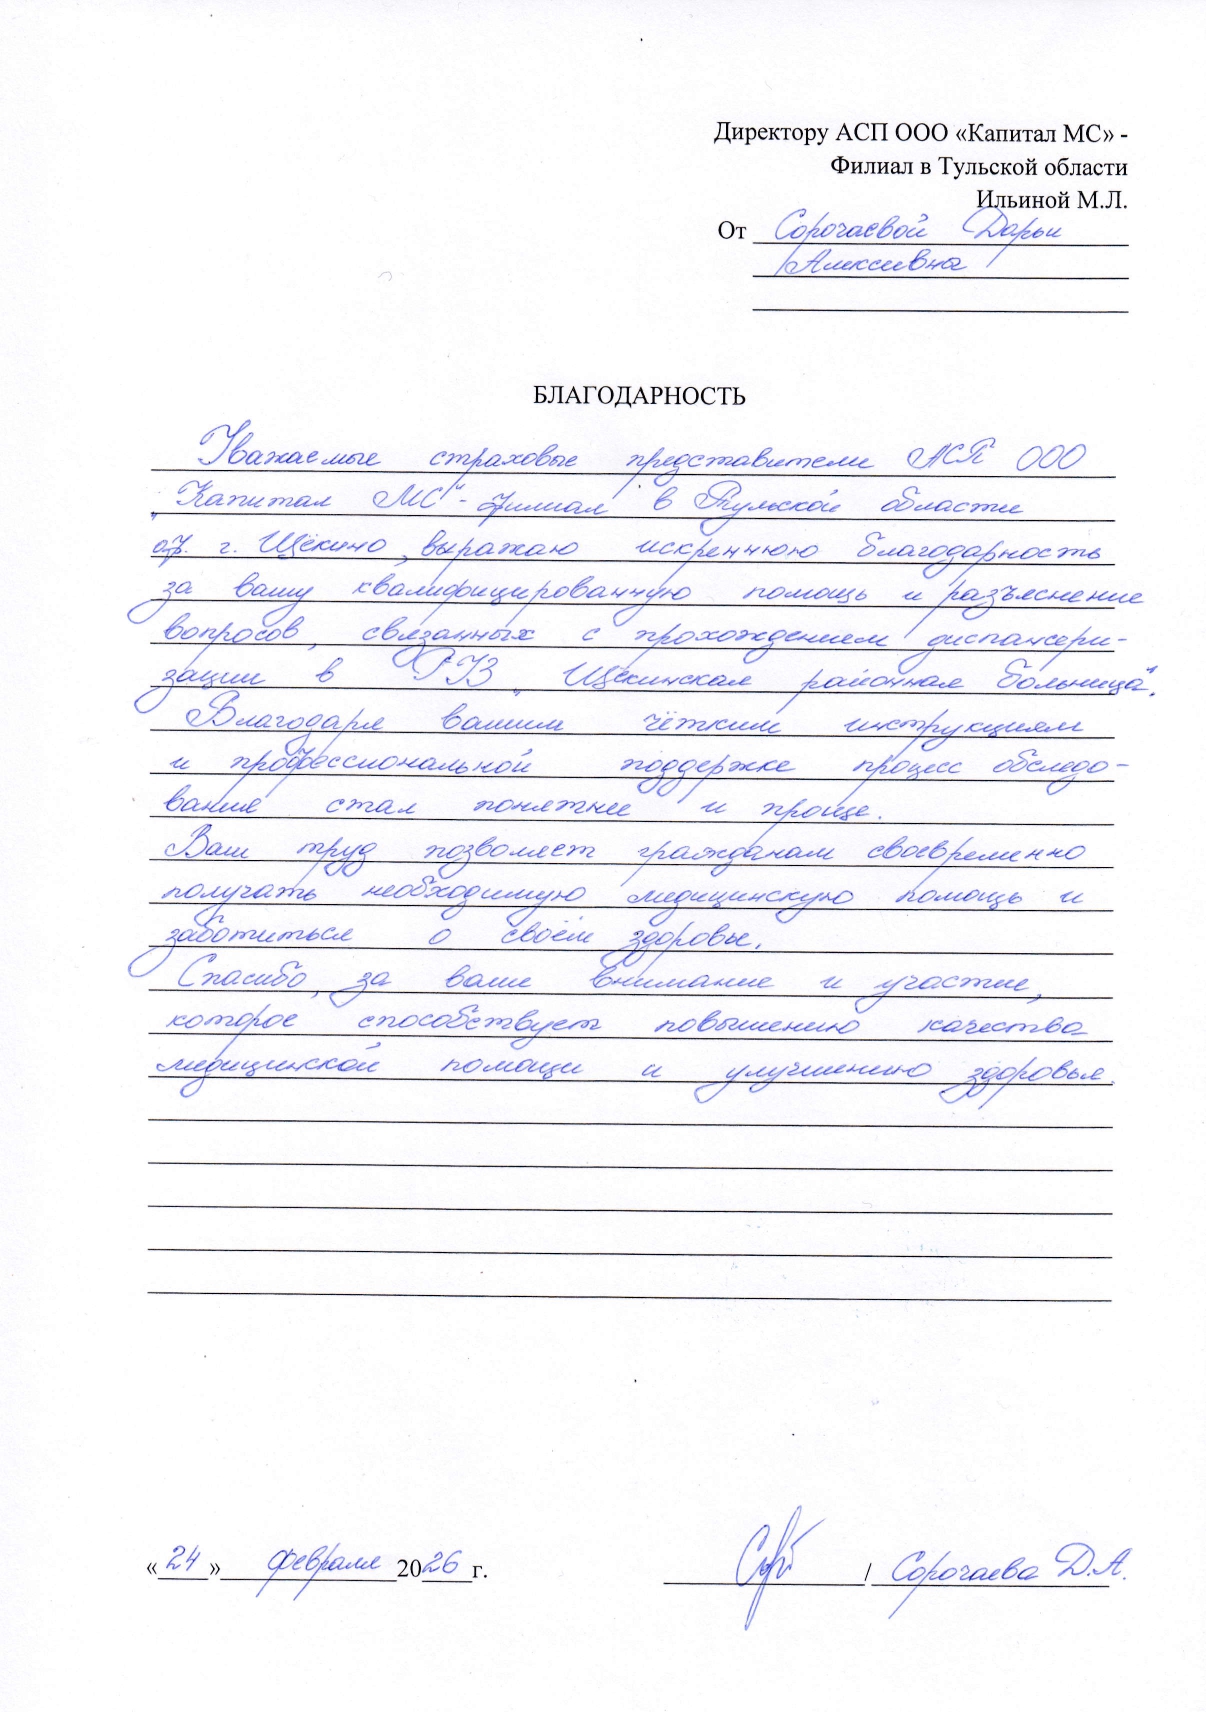 Директору АСП ООО «Капитал МС» -
Филиал в Тульской области
Ильиной М.Л.
От Сорочаевой Дарьи
Алексеевна
БЛАГОДАРНОСТЬ
Уважаемые страховые представители АСП ООО
„Капитал МС“ - филиал в Тульской области
оф. г. Щёкино, выражаю искреннюю благодарность
за вашу квалифицированную помощь и разъяснение
вопросов, связанных с прохождением диспансери-
зации в ГУЗ „Щёкинская районная больница“.
Благодаря вашим чётким инструкциям
и профессиональной поддержке процесс обследо-
вания стал понятнее и проще.
Ваш труд позволяет гражданам своевременно
получать необходимую медицинскую помощь и
заботиться о своём здоровье.
Спасибо, за ваше внимание и участие,
которое способствует повышению качества
медицинской помощи и улучшению здоровья.
«24» февраля 2026 г. / Сорочаева Д.А.